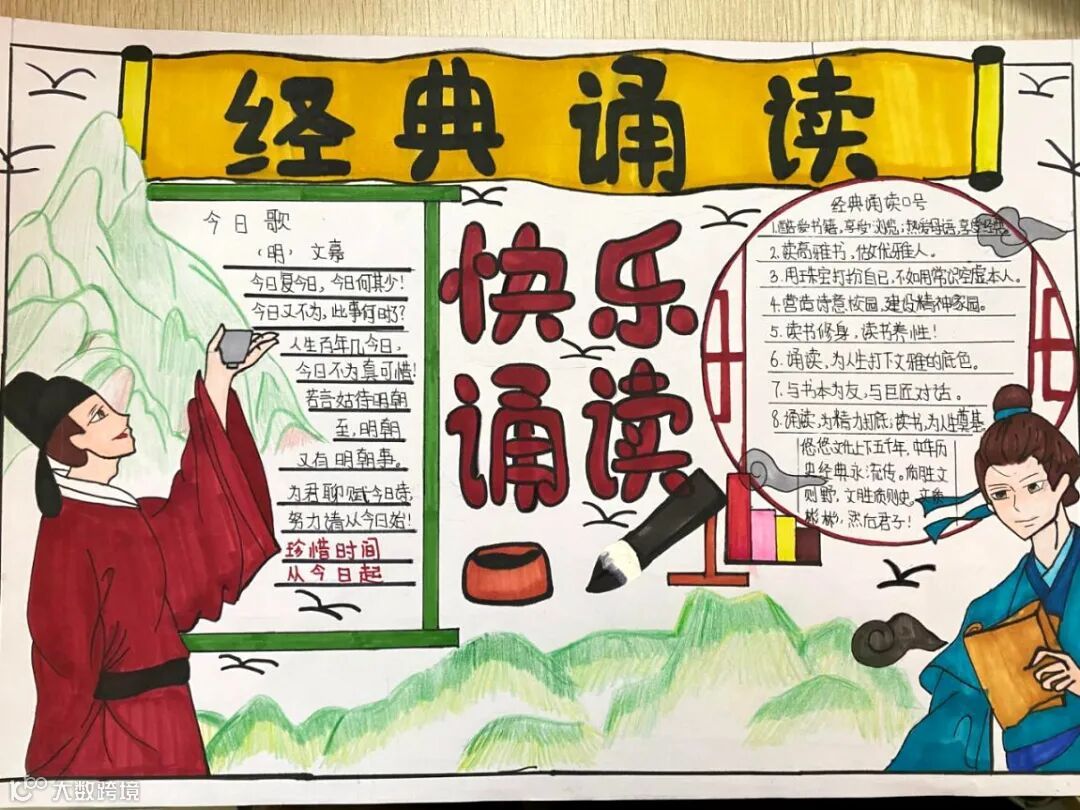 经典诵读
今日歌
（明）文嘉
今日复今日，今日何其少！
今日又不为，此事何时了？
人生百年几今日，
今日不为真可惜！
若言姑待明朝
至，明朝
又有明朝事。
为君聊赋今日诗，
努力请从今日始！
珍惜时间
从今日起
快乐
诵读
经典诵读口号
1.酷爱书籍，享受浏览；热爱母语，享受经典
2.读高雅书，做优雅人。
3.用珠宝打扮自己，不如用常识空虚本人。
4.营造诗意校园，建设精神家园。
5.读书修身，读书养性！
6.诵读，为人生打下文雅的底色。
7.与书本为友，与巨匠对话。
8.诵读，为精力打底；读书，为人生奠基
悠悠文化上下五千年，中华历
史经典永流传。质胜文
则野，文胜质则史。文质
彬彬，然后君子！
大数跨境